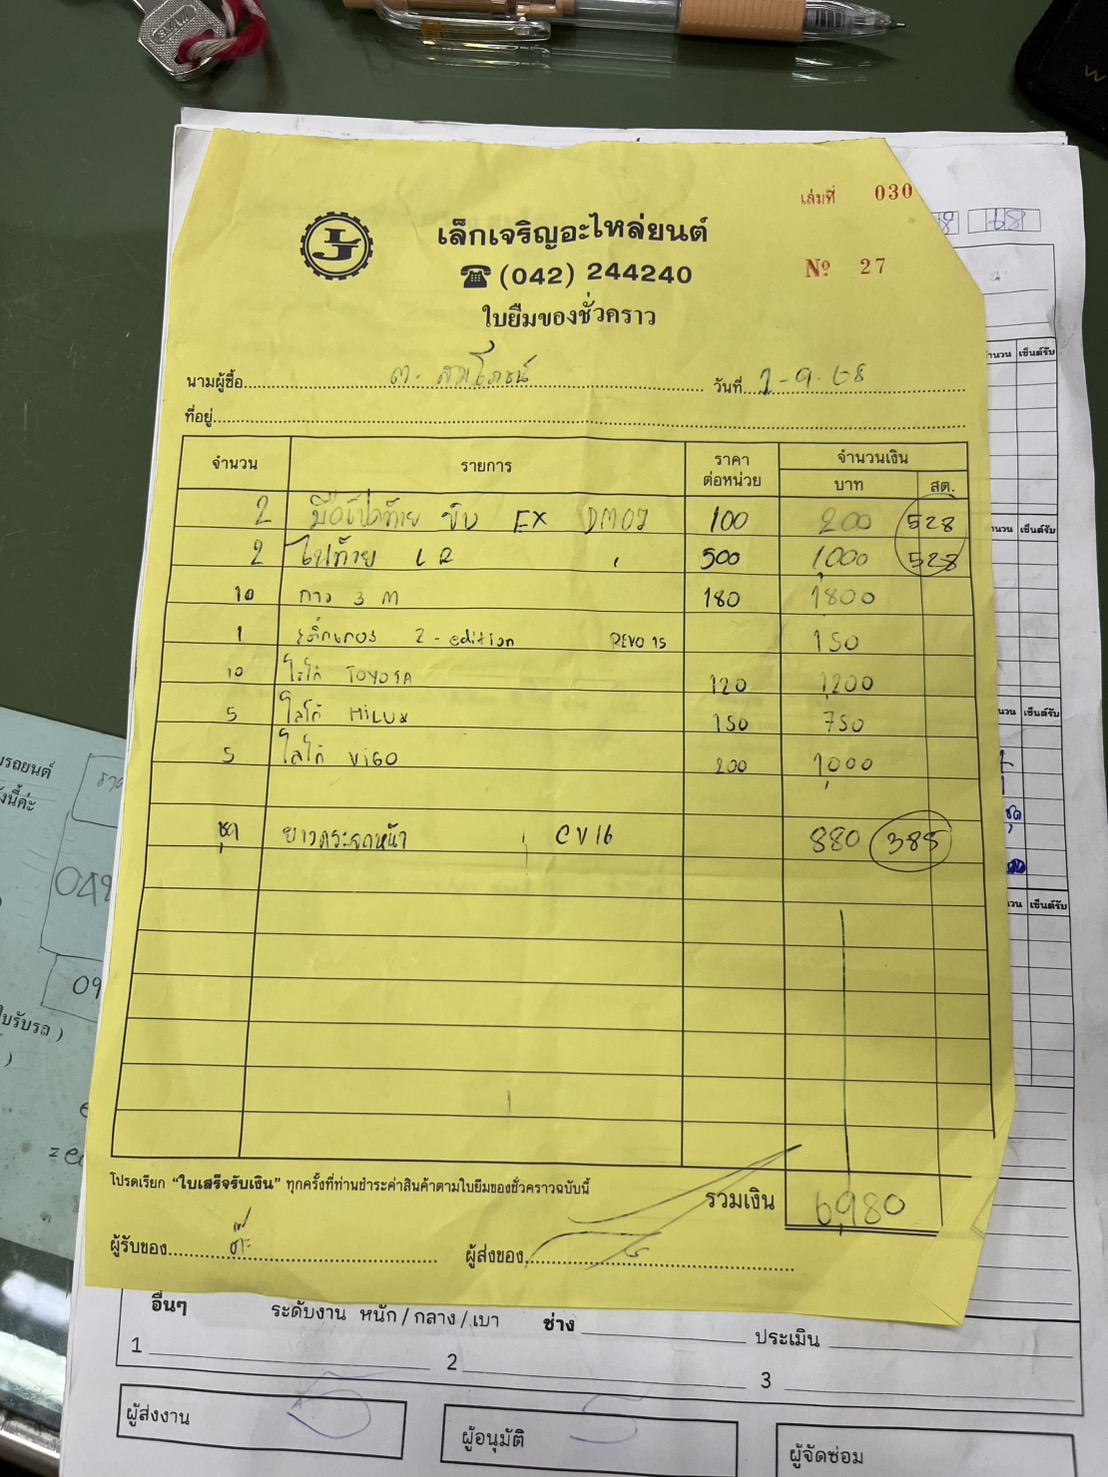 เล่มที่ 030
เล็กเจริญอะไหล่ยนต์
(042) 244240
Nº 27
ใบยืมของชั่วคราว
นามผู้ซื้อ
วันที่ 2-9-68
ที่อยู่
จำนวน รายการ ราคาต่อหน่วย จำนวนเงิน
บาท สต.
2 มือเปิดท้าย EX DMAX 100 200 528
2 ไฟท้าย L R 500 1,000 528
10 กาว 3 M 180 1800
1 สติ๊กเกอร์ Z-edition REVO 15 150
10 โลโก้ TOYOTA 120 1,200
5 โลโก้ HiLUX 150 750
5 โลโก้ ViGO 200 1,000
ชุด ยางกระจกหน้า CV16 880 385
โปรดเรียก "ใบเสร็จรับเงิน" ทุกครั้งที่ท่านชำระค่าสินค้าตามใบยืมของชั่วคราวฉบับนี้
รวมเงิน 6,980
ผู้รับของ
ผู้ส่งของ
อื่นๆ ระดับงาน หนัก / กลาง / เบา ช่าง ประเมิน
1 2 3
ผู้ส่งงาน
ผู้อนุมัติ
ผู้จัดซ่อม
68
เซ็นต์รับ
เซ็นต์รับ
เซ็นต์รับ
ชุด
เซ็นต์รับ